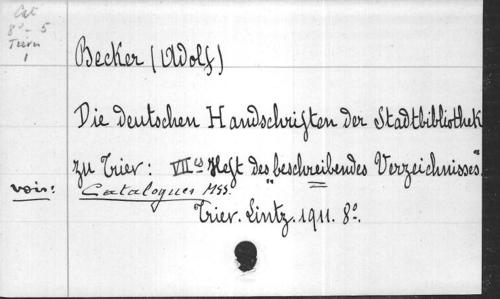 Cat
8º - 5
Trèv
1
Becker (Adolf)
Die deutschen Handschriften der Stadtbibliothek
zu Trier: VIIes Heft des "beschreibendes Verzeichnisses".
vois: Catalogues MSS.
Trier. Lintz. 1911. 8º.